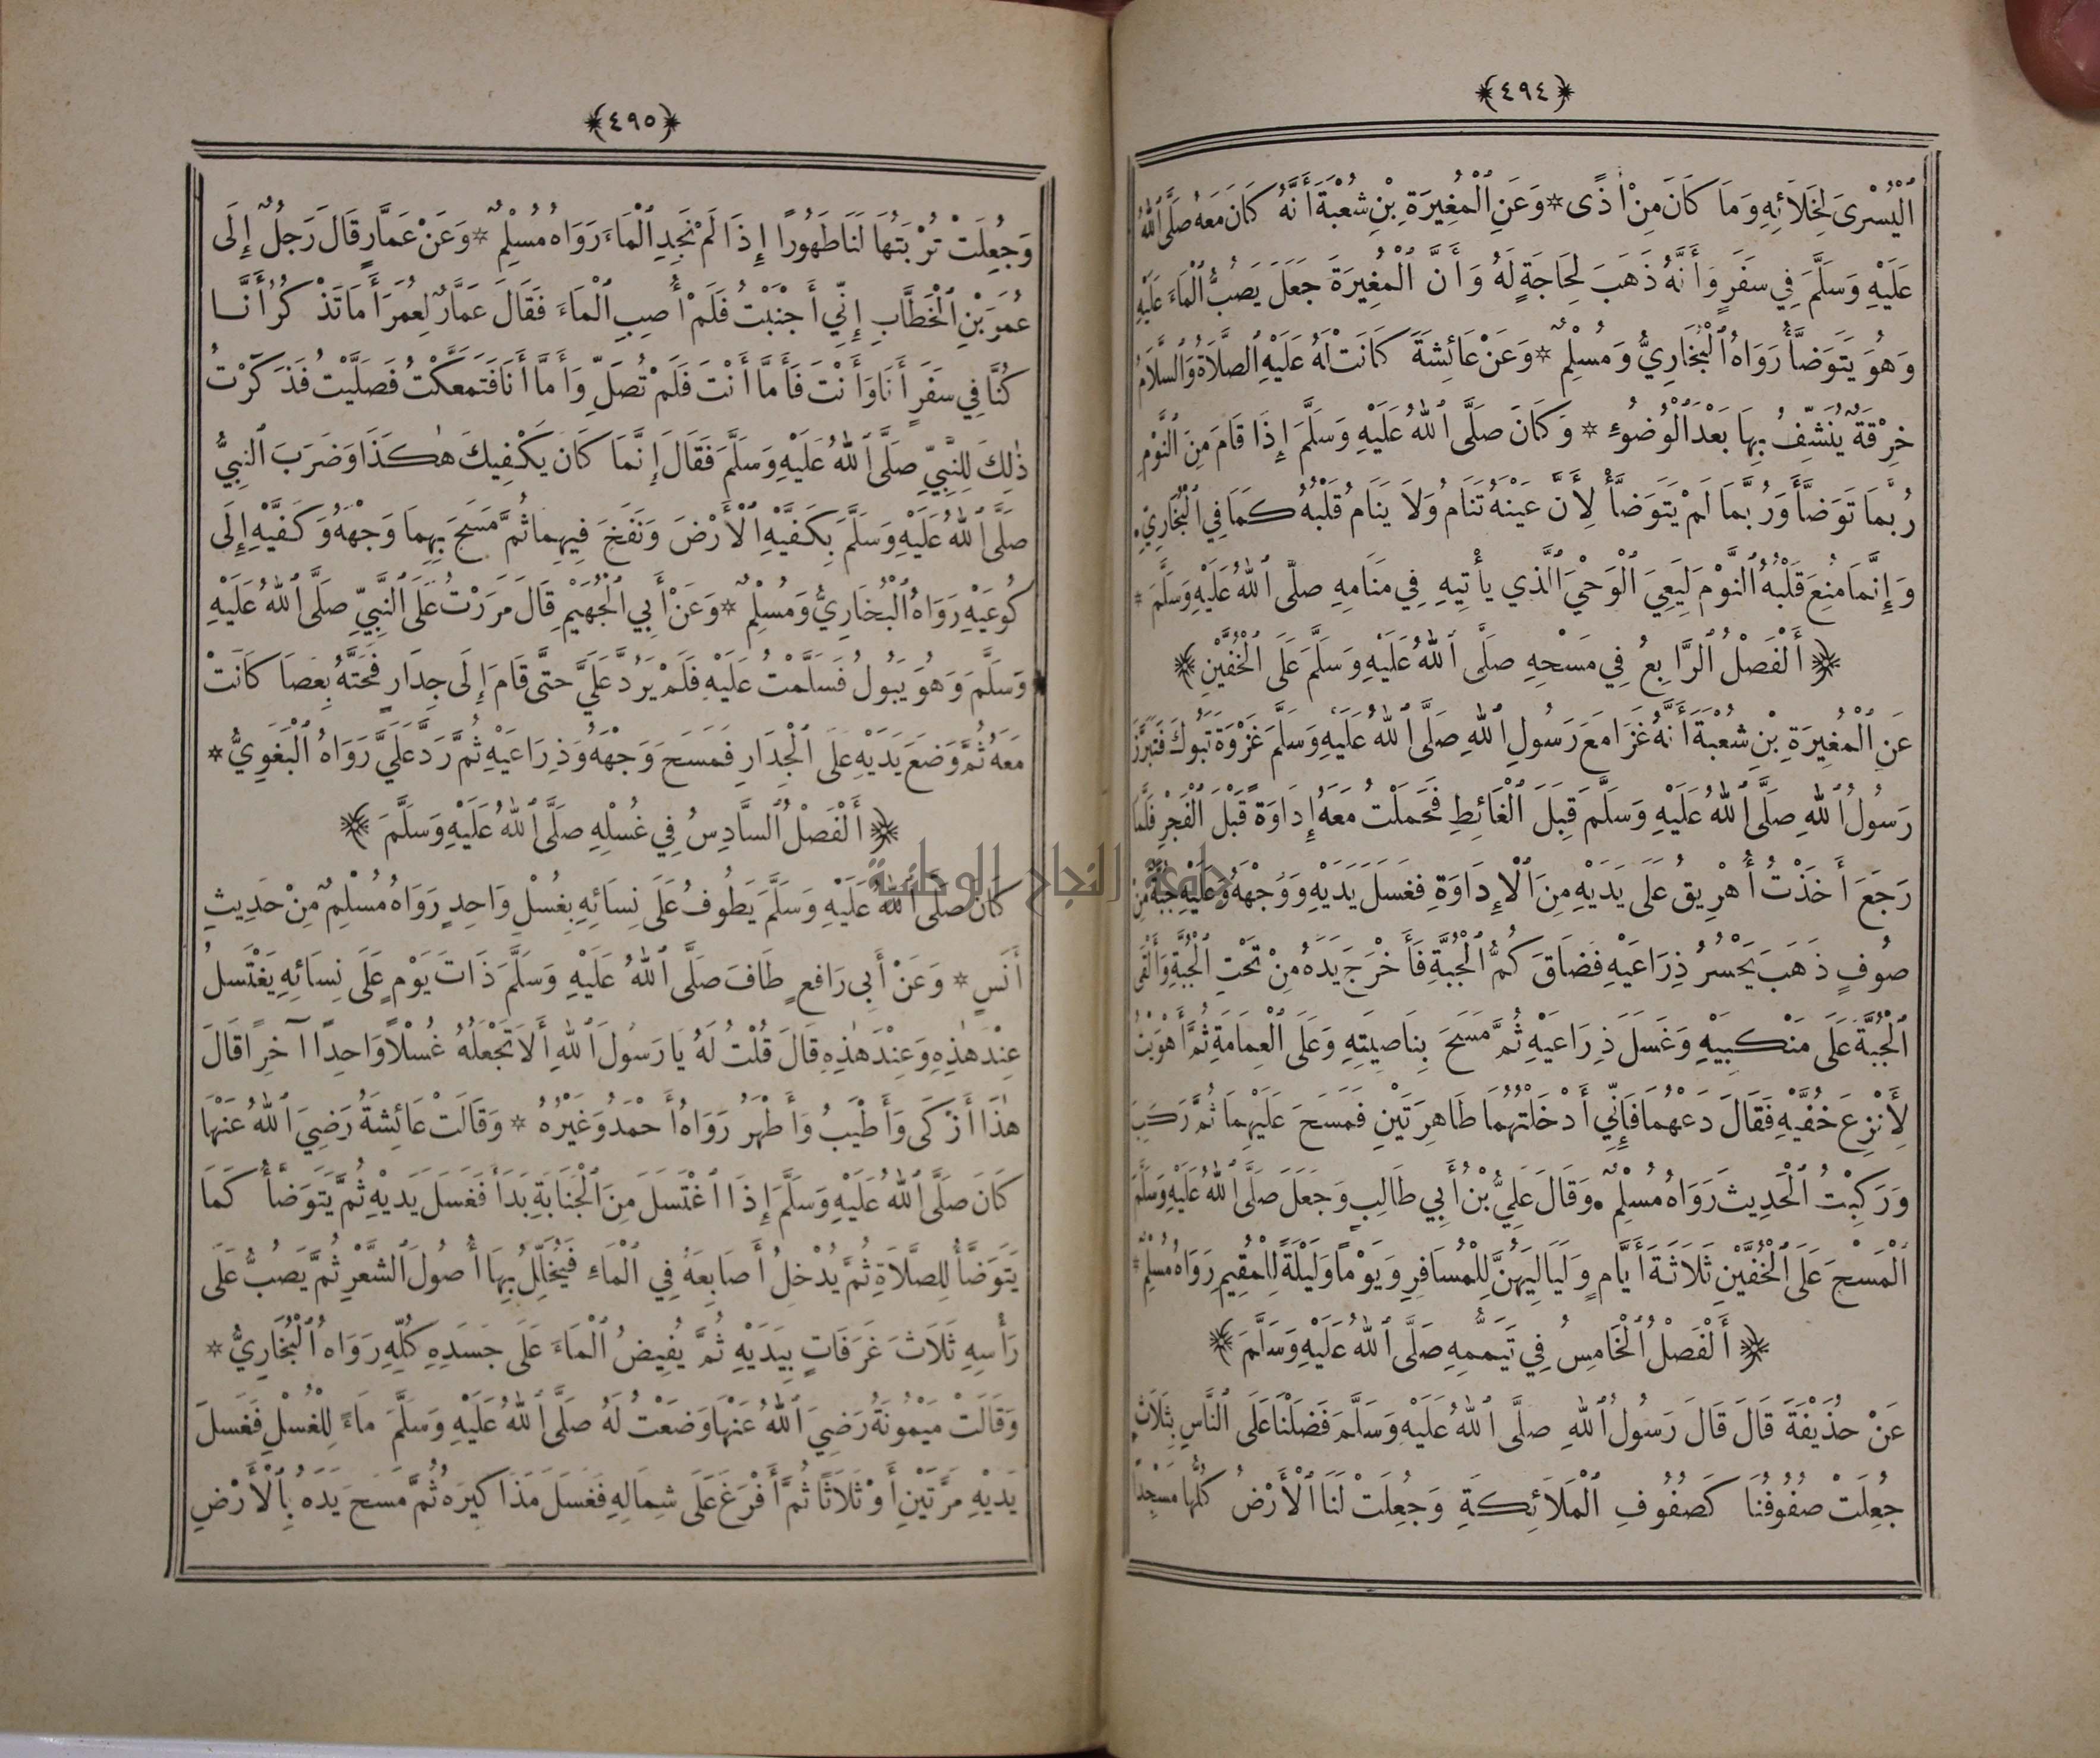 ﴿٤٩٤﴾
ٱلْيُسْرَى لِخَلَائِهِ وَمَا كَانَ مِنْ أَذًى * وَعَنِ ٱلْمُغِيرَةِ بْنِ شُعْبَةَ أَنَّهُ كَانَ مَعَهُ صَلَّى ٱللهُ
عَلَيْهِ وَسَلَّمَ فِي سَفَرٍ وَأَنَّهُ ذَهَبَ لِحَاجَةٍ لَهُ وَأَنَّ ٱلْمُغِيرَةَ جَعَلَ يَصُبُّ ٱلْمَاءَ عَلَيْهِ
وَهُوَ يَتَوَضَّأُ رَوَاهُ ٱلْبُخَارِيُّ وَمُسْلِمٌ * وَعَنْ عَائِشَةَ كَانَتْ لَهُ عَلَيْهِ ٱلصَّلَاةُ وَٱلسَّلَامُ
خِرْقَةٌ يُنَشِّفُ بِهَا بَعْدَ ٱلْوُضُوءِ * وَكَانَ صَلَّى ٱللهُ عَلَيْهِ وَسَلَّمَ إِذَا قَامَ مِنَ ٱلنَّوْمِ
رُبَّمَا تَوَضَّأَ وَرُبَّمَا لَمْ يَتَوَضَّأْ لِأَنَّ عَيْنَهُ تَنَامُ وَلَا يَنَامُ قَلْبُهُ كَمَا فِي ٱلْبُخَارِيِّ
وَإِنَّمَا مُنِعَ قَلْبُهُ ٱلنَّوْمَ لِيَعِيَ ٱلْوَحْيَ ٱلَّذِي يَأْتِيهِ فِي مَنَامِهِ صَلَّى ٱللهُ عَلَيْهِ وَسَلَّمَ *
﴿ أَلْفَصْلُ ٱلرَّابِعُ فِي مَسْحِهِ صَلَّى ٱللهُ عَلَيْهِ وَسَلَّمَ عَلَى ٱلْخُفَّيْنِ ﴾
عَنِ ٱلْمُغِيرَةِ بْنِ شُعْبَةَ أَنَّهُ غَزَا مَعَ رَسُولِ ٱللهِ صَلَّى ٱللهُ عَلَيْهِ وَسَلَّمَ غَزْوَةَ تَبُوكَ فَتَبَرَّزَ
رَسُولُ ٱللهِ صَلَّى ٱللهُ عَلَيْهِ وَسَلَّمَ قِبَلَ ٱلْغَائِطِ فَحَمَلْتُ مَعَهُ إِدَاوَةً قَبْلَ ٱلْفَجْرِ فَلَمَّا
رَجَعَ أَخَذْتُ أُهْرِيقُ عَلَى يَدَيْهِ مِنَ ٱلْإِدَاوَةِ فَغَسَلَ يَدَيْهِ وَوَجْهَهُ وَعَلَيْهِ جُبَّةٌ مِنْ
صُوفٍ ذَهَبَ يَحْسُرُ ذِرَاعَيْهِ فَضَاقَ كُمُّ ٱلْجُبَّةِ فَأَخْرَجَ يَدَهُ مِنْ تَحْتِ ٱلْجُبَّةِ وَأَلْقَى
ٱلْجُبَّةَ عَلَى مَنْكِبَيْهِ وَغَسَلَ ذِرَاعَيْهِ ثُمَّ مَسَحَ بِنَاصِيَتِهِ وَعَلَى ٱلْعِمَامَةِ ثُمَّ أَهْوَيْتُ
لِأَنْزِعَ خُفَّيْهِ فَقَالَ دَعْهُمَا فَإِنِّي أَدْخَلْتُهُمَا طَاهِرَتَيْنِ فَمَسَحَ عَلَيْهِمَا ثُمَّ رَكِبَ
وَرَكِبْتُ ٱلْحَدِيثَ رَوَاهُ مُسْلِمٌ * وَقَالَ عَلِيُّ بْنُ أَبِي طَالِبٍ وَجَعَلَ صَلَّى ٱللهُ عَلَيْهِ وَسَلَّمَ
ٱلْمَسْحَ عَلَى ٱلْخُفَّيْنِ ثَلَاثَةَ أَيَّامٍ وَلَيَالِيَهُنَّ لِلْمُسَافِرِ وَيَوْمًا وَلَيْلَةً لِلْمُقِيمِ رَوَاهُ مُسْلِمٌ *
﴿ أَلْفَصْلُ ٱلْخَامِسُ فِي تَيَمُّمِهِ صَلَّى ٱللهُ عَلَيْهِ وَسَلَّمَ ﴾
عَنْ حُذَيْفَةَ قَالَ قَالَ رَسُولُ ٱللهِ صَلَّى ٱللهُ عَلَيْهِ وَسَلَّمَ فَضَلْنَا عَلَى ٱلنَّاسِ بِثَلَاثٍ
جُعِلَتْ صُفُوفُنَا كَصُفُوفِ ٱلْمَلَائِكَةِ وَجُعِلَتْ لَنَا ٱلْأَرْضُ كُلُّهَا مَسْجِدًا
﴿٤٩٥﴾
وَجُعِلَتْ تُرْبَتُهَا لَنَا طَهُورًا إِذَا لَمْ نَجِدِ ٱلْمَاءَ رَوَاهُ مُسْلِمٌ * وَعَنْ عَمَّارٍ قَالَ رَجُلٌ إِلَى
عُمَرَ بْنِ ٱلْخَطَّابِ إِنِّي أَجْنَبْتُ فَلَمْ أُصِبِ ٱلْمَاءَ فَقَالَ عَمَّارٌ لِعُمَرَ أَمَا تَذْكُرُ أَنَّا
كُنَّا فِي سَفَرٍ أَنَا وَأَنْتَ فَأَمَّا أَنْتَ فَلَمْ تُصَلِّ وَأَمَّا أَنَا فَتَمَعَّكْتُ فَصَلَّيْتُ فَذَكَرْتُ
ذٰلِكَ لِلنَّبِيِّ صَلَّى ٱللهُ عَلَيْهِ وَسَلَّمَ فَقَالَ إِنَّمَا كَانَ يَكْفِيكَ هٰكَذَا وَضَرَبَ ٱلنَّبِيُّ
صَلَّى ٱللهُ عَلَيْهِ وَسَلَّمَ بِكَفَّيْهِ ٱلْأَرْضَ وَنَفَخَ فِيهِمَا ثُمَّ مَسَحَ بِهِمَا وَجْهَهُ وَكَفَّيْهِ إِلَى
كُوعَيْهِ رَوَاهُ ٱلْبُخَارِيُّ وَمُسْلِمٌ * وَعَنْ أَبِي ٱلْجُهَيْمِ قَالَ مَرَرْتُ عَلَى ٱلنَّبِيِّ صَلَّى ٱللهُ عَلَيْهِ
وَسَلَّمَ وَهُوَ يَبُولُ فَسَلَّمْتُ عَلَيْهِ فَلَمْ يَرُدَّ عَلَيَّ حَتَّى قَامَ إِلَى جِدَارٍ فَحَتَّهُ بِعَصًا كَانَتْ
مَعَهُ ثُمَّ وَضَعَ يَدَيْهِ عَلَى ٱلْجِدَارِ فَمَسَحَ وَجْهَهُ وَذِرَاعَيْهِ ثُمَّ رَدَّ عَلَيَّ رَوَاهُ ٱلْبَغَوِيُّ *
﴿ أَلْفَصْلُ ٱلسَّادِسُ فِي غُسْلِهِ صَلَّى ٱللهُ عَلَيْهِ وَسَلَّمَ ﴾
كَانَ صَلَّى ٱللهُ عَلَيْهِ وَسَلَّمَ يَطُوفُ عَلَى نِسَائِهِ بِغُسْلٍ وَاحِدٍ رَوَاهُ مُسْلِمٌ مِنْ حَدِيثِ
أَنَسٍ * وَعَنْ أَبِي رَافِعٍ طَافَ صَلَّى ٱللهُ عَلَيْهِ وَسَلَّمَ ذَاتَ يَوْمٍ عَلَى نِسَائِهِ يَغْتَسِلُ
عِنْدَ هٰذِهِ وَعِنْدَ هٰذِهِ قَالَ قُلْتُ لَهُ يَا رَسُولَ ٱللهِ أَلَا تَجْعَلُهُ غُسْلًا وَاحِدًا آخِرًا قَالَ
هٰذَا أَزْكَى وَأَطْيَبُ وَأَطْهَرُ رَوَاهُ أَحْمَدُ وَغَيْرُهُ * وَقَالَتْ عَائِشَةُ رَضِيَ ٱللهُ عَنْهَا
كَانَ صَلَّى ٱللهُ عَلَيْهِ وَسَلَّمَ إِذَا ٱغْتَسَلَ مِنَ ٱلْجَنَابَةِ بَدَأَ فَغَسَلَ يَدَيْهِ ثُمَّ يَتَوَضَّأُ كَمَا
يَتَوَضَّأُ لِلصَّلَاةِ ثُمَّ يُدْخِلُ أَصَابِعَهُ فِي ٱلْمَاءِ فَيُخَلِّلُ بِهَا أُصُولَ ٱلشَّعْرِ ثُمَّ يَصُبُّ عَلَى
رَأْسِهِ ثَلَاثَ غَرَفَاتٍ بِيَدَيْهِ ثُمَّ يُفِيضُ ٱلْمَاءَ عَلَى جَسَدِهِ كُلِّهِ رَوَاهُ ٱلْبُخَارِيُّ *
وَقَالَتْ مَيْمُونَةُ رَضِيَ ٱللهُ عَنْهَا وَضَعْتُ لَهُ صَلَّى ٱللهُ عَلَيْهِ وَسَلَّمَ مَاءً لِلْغُسْلِ فَغَسَلَ
يَدَيْهِ مَرَّتَيْنِ أَوْ ثَلَاثًا ثُمَّ أَفْرَغَ عَلَى شِمَالِهِ فَغَسَلَ مَذَاكِيرَهُ ثُمَّ مَسَحَ يَدَهُ بِٱلْأَرْضِ
جامعة النجاح الوطنية